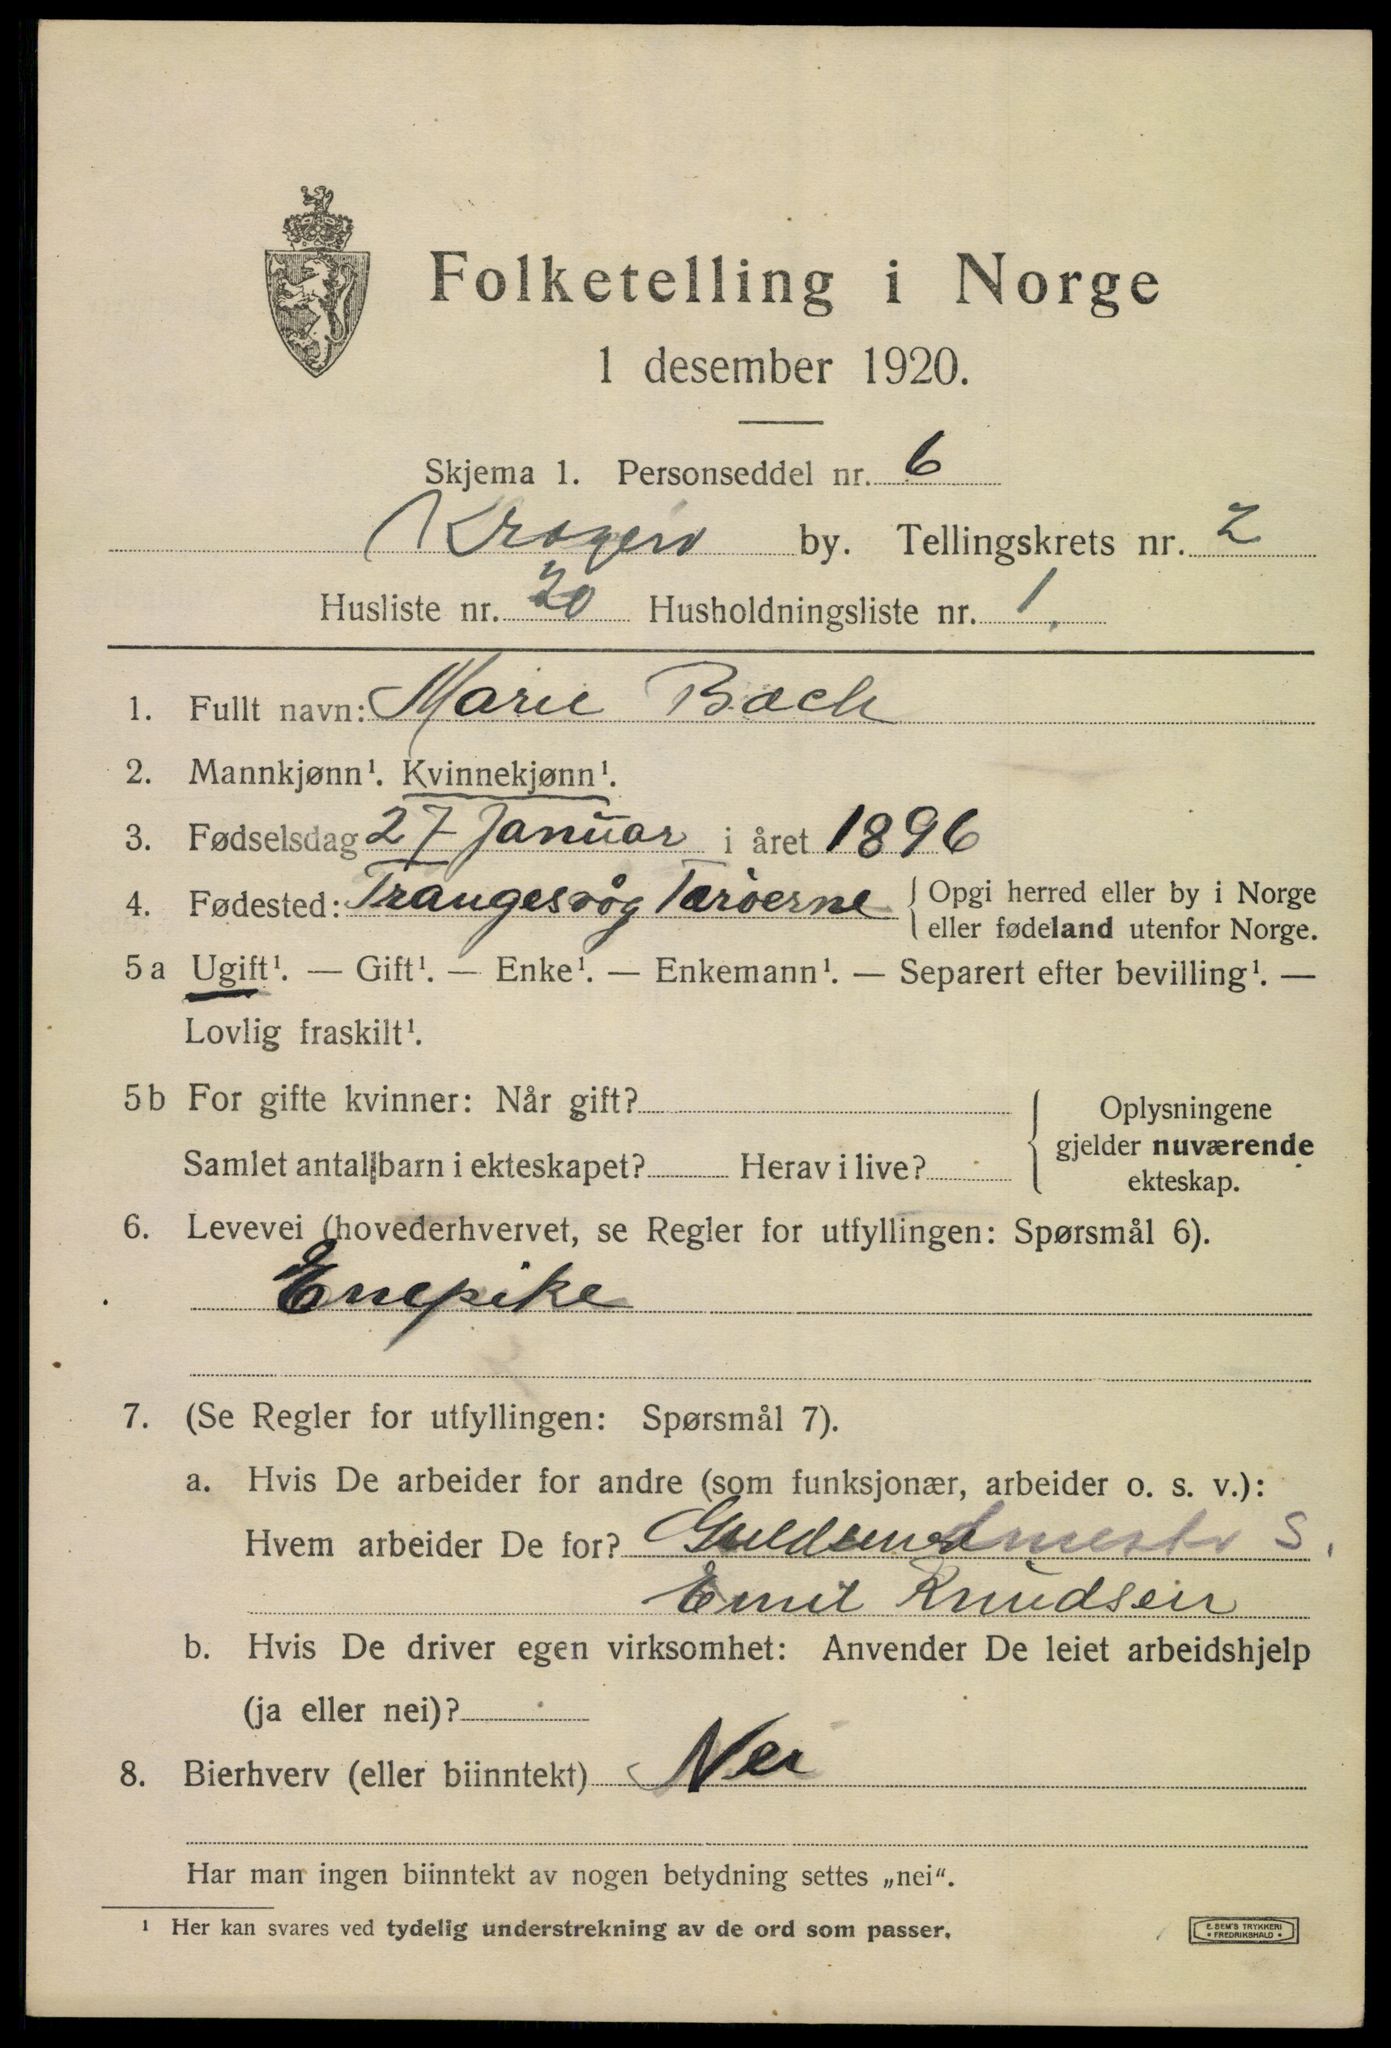 Folketelling i Norge
1 desember 1920.
Skjema 1. Personseddel nr. 6
Kragerø by. Tellingskrets nr. 2
Husliste nr. 20 Husholdningsliste nr. 1.
1. Fullt navn: Marie Bach
2. Mannkjønn¹. Kvinnekjønn¹.
3. Fødselsdag 27 Januar i året 1896
4. Fødested: Trangesvåg Færöerne { Opgi herred eller by i Norge
eller fødeland utenfor Norge.
5 a Ugift¹. — Gift¹. — Enke¹. — Enkemann¹. — Separert efter bevilling¹. —
Lovlig fraskilt¹.
5 b For gifte kvinner: Når gift?
Samlet antall barn i ekteskapet? Herav i live?
Oplysningene
gjelder nuværende
ekteskap.
6. Levevei (hovederhvervet, se Regler for utfyllingen: Spørsmål 6).
Enepike
7. (Se Regler for utfyllingen: Spørsmål 7).
a. Hvis De arbeider for andre (som funksjonær, arbeider o. s. v.):
Hvem arbeider De for? Guldsmedmester S.
Emil Knudsen
b. Hvis De driver egen virksomhet: Anvender De leiet arbeidshjelp
(ja eller nei)?
8. Bierhverv (eller biinntekt) Nei
Har man ingen biinntekt av nogen betydning settes „nei“.
¹ Her kan svares ved tydelig understrekning av de ord som passer.
E. SEM'S TRYKKERI
• FREDRIKSHALD •